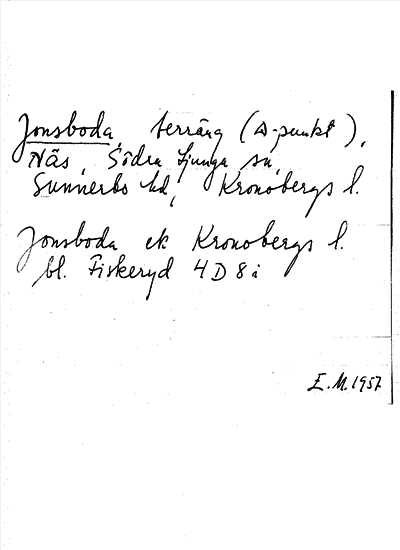 Jonsboda, terräng (△-punkt),
Näs, Södra Ljunga sn,
Sunnerbo hd, Kronobergs l.
Jonsboda ek Kronobergs l.
bl. Fiskeryd 4D8i
E.M.1957